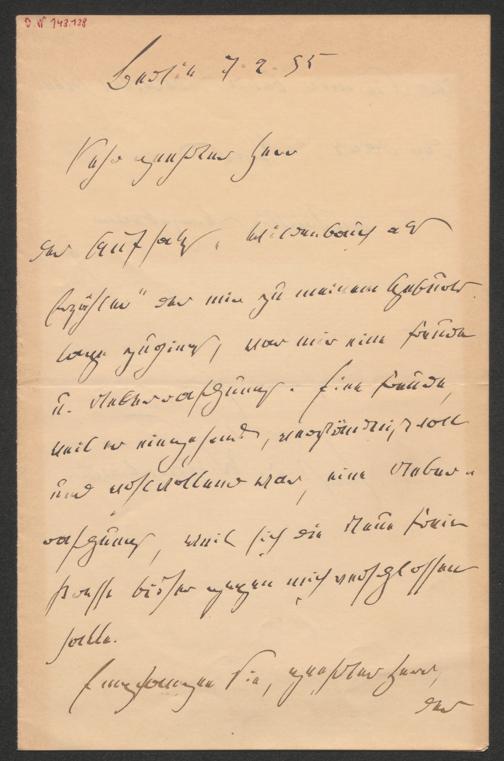 I N 143.138
Berlin 7.2.95
Sehr geehrter Herr
der Aufsatz „Wildenbruch als
Erzähler" der mir zu meinem Geburts-
tage zuging, war mir eine Freude
u. Ueberraschung. Eine Freude,
weil er eingehend, verständnißvoll
und wohlwollend war, eine Ueber-
raschung, weil sich die Neue Freie
Presse bisher gegen mich verschlossen
hatte.
Empfangen Sie, geehrter Herr,
den